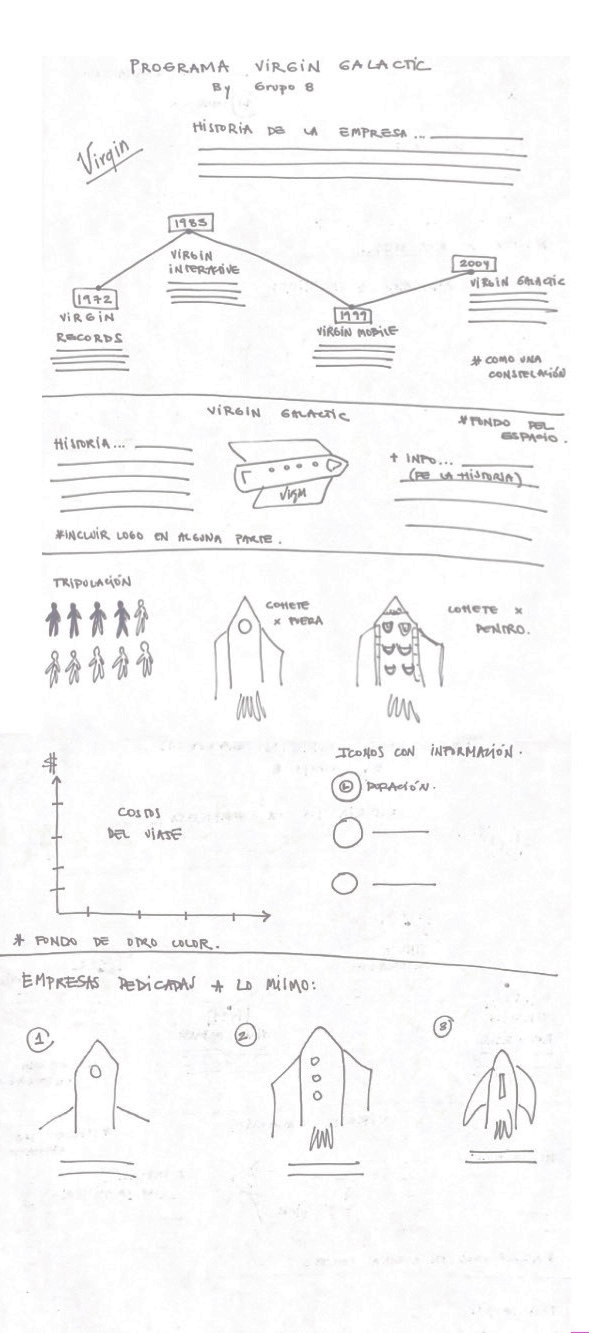 PROGRAMA VIRGIN GALACTIC
By Grupo 8
HISTORIA DE LA EMPRESA...
Virgin
1983
VIRGIN
INTERACTIVE
2004
VIRGIN GALACTIC
1972
VIRGIN
RECORDS
1999
VIRGIN MOBILE
* COMO UNA
CONSTELACIÓN
VIRGIN GALACTIC
* FONDO DEL
ESPACIO.
HISTORIA...
+ INFO...
(DE LA HISTORIA)
*INCLUIR LOGO EN ALGUNA PARTE.
TRIPULACIÓN
COHETE
x FUERA
COHETE x
DENTRO.
ICONOS CON INFORMACIÓN.
$
DURACIÓN.
COSTOS
DEL VIAJE
* FONDO DE OTRO COLOR.
EMPRESAS DEDICADAS A LO MISMO:
1
2
3